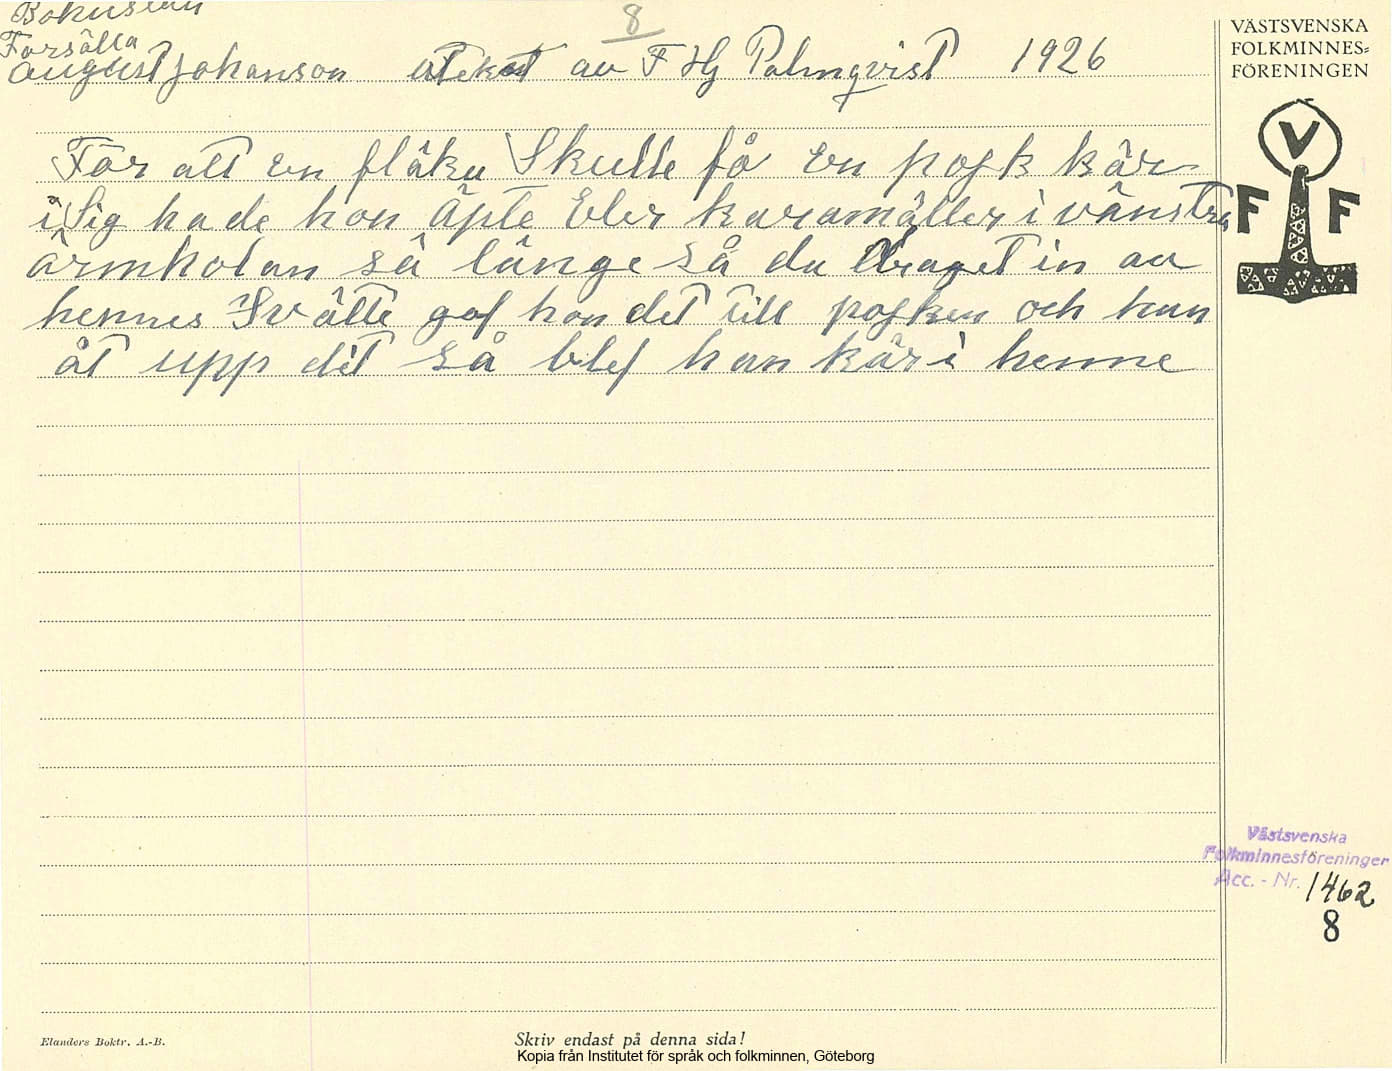 Bohuslän
8
Forsälla
August Johanson uteknat av F Hj Palmqvist 1926
För att en fläka Skulle få en pojk kär
i Sig hade hon äple Eler karamäller i vänstra
ärmholan så länge så du draget in av
hennes Svätte gaf hon det till pojken och han
åt upp det så blef han kär i henne
VÄSTSVENSKA
FOLKMINNES=
FÖRENINGEN
V
F F
Västsvenska
Folkminnesföreningen
Acc. - Nr. 1462
8
Elanders Boktr. A.-B.
Skriv endast på denna sida!
Kopia från Institutet för språk och folkminnen, Göteborg